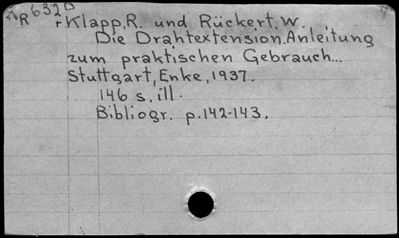 NR 6320
Klapp, R. und Rückert, W.
Die Drahtextension. Anleitung
zum praktischen Gebrauch...
Stuttgart, Enke, 1937.
146 s. ill.
Bibliogr. p. 142-143.